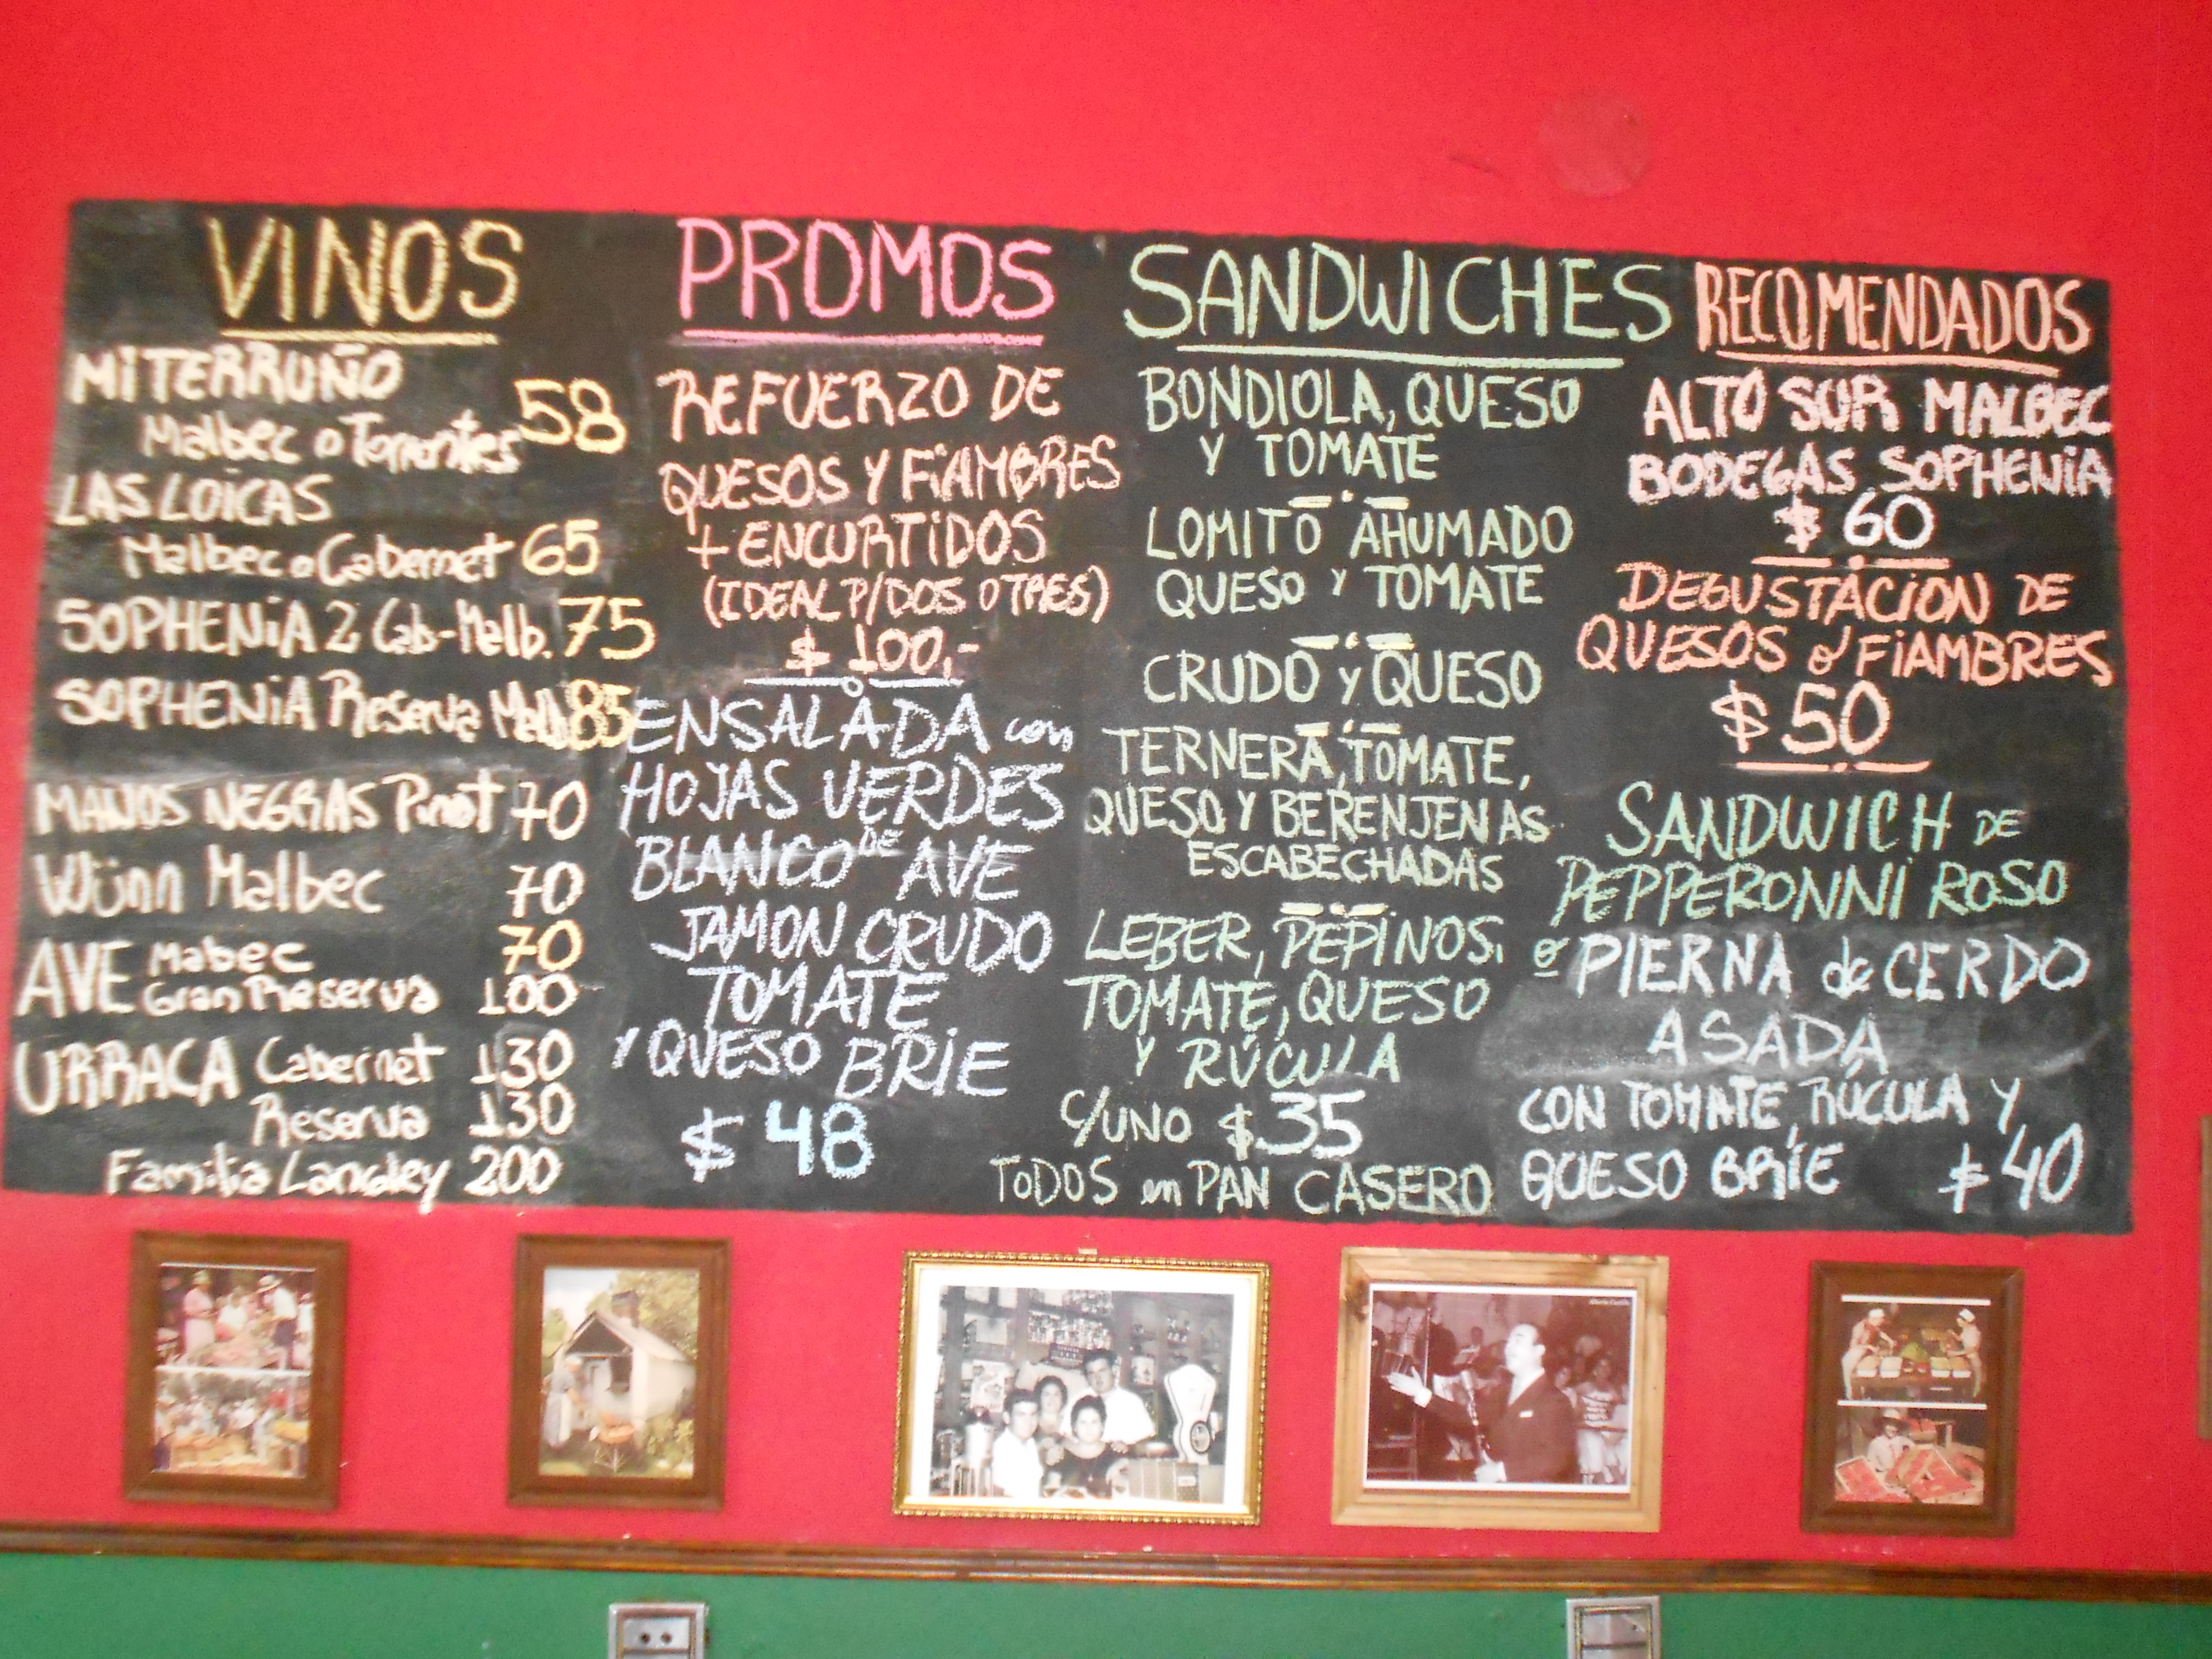 VINOS
MI TERRUÑO
Malbec o Torrontes 58
LAS LOICAS
Malbec o Cabernet 65
SOPHENIA 2 Cab-Malb. 75
SOPHENIA Reserva Malb 85
MANOS NEGRAS Pinot 70
Wünn Malbec 70
AVE Mabec 70
Gran Reserva 100
URRACA Cabernet 130
Reserva 130
Familia Landley 200
PROMOS
REFUERZO DE
QUESOS Y FiAMBRES
+ ENCURTiDOS
(IDEAL P/DOS O TRES)
$ 100,-
ENSALADA con
HOJAS VERDES
BLANCO DE AVE
JAMON CRUDO
TOMATE
Y QUESO BRiE
$ 48
SANDWICHES
BONDIOLA, QUESO
Y TOMATE
LOMITO AHUMADO
QUESO Y TOMATE
CRUDO y QUESO
TERNERA, TOMATE,
QUESO Y BERENJENAS
ESCABECHADAS
LEBER, PEPINOS,
TOMATE, QUESO
Y RÚCULA
C/UNO $35
TODOS en PAN CASERO
RECOMENDADOS
ALTO SUR MALBEC
BODEGAS SOPHENiA
$ 60
DEGUSTACION DE
QUESOS o' FiAMBRES
$ 50
SANDWICH DE
PEPPERONNI ROSO
o PIERNA de CERDO
ASADA
CON TOMATE, RÚCULA Y
QUESO BRIE $40